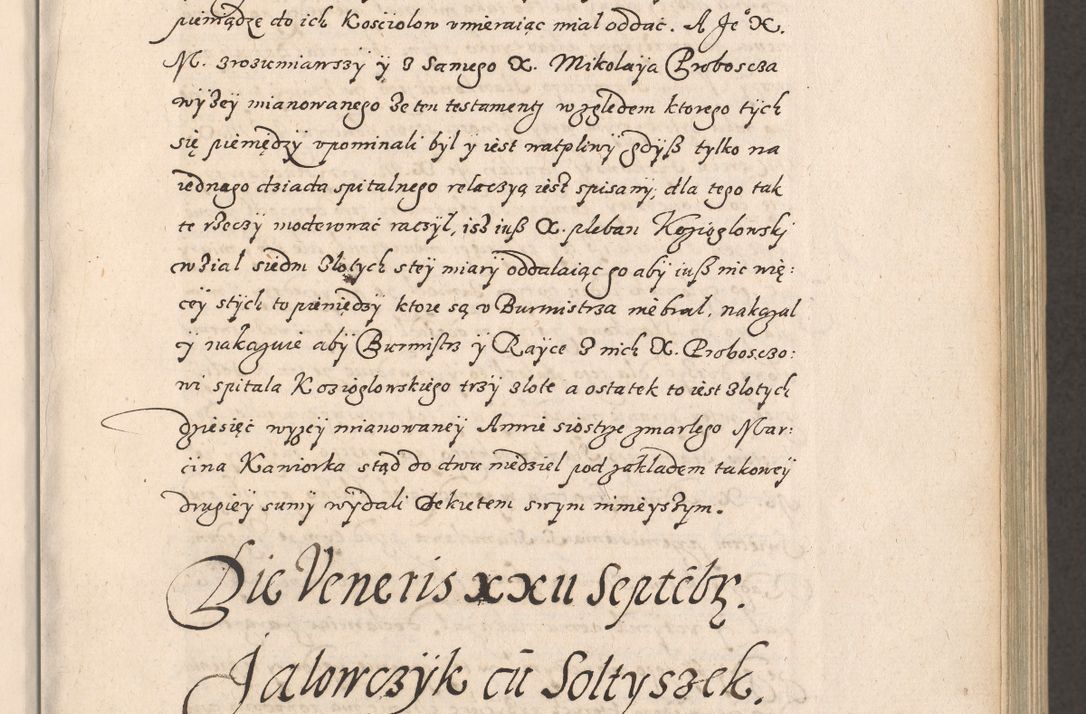 pieniądze do ich Kosciolow vmieraiąc mial oddac. A Je° X.
M. zrozumiawszy ÿ z samego X. Mikolaÿa Proboscza
wyżeÿ mianowanego że ten testament względem ktorego tÿch
się pieniędzy vpominali bÿl y iest watpliwÿ gdÿß tylko na
iednego dziada spitalnego relaczyą iest spisanÿ, dla tego tak
te rzeczy moderować raczÿl, isz iuß X. pleban Koziglowskj
wzial siedm zlotych s teÿ miarÿ oddalaiąc go abÿ iuß nic wię:
ceÿ s tÿch to pieniędzy ktore są v Burmistrza nie bral, nakazal
ÿ nakazuie abÿ Burmistrz ÿ Rayce z nich X. Proboszczo:
wi spitala Kozioglowskiego trzÿ zlote a ostatek to iest zlotÿch
dziesięć wyzeÿ mianowaneÿ Annie siostrze zmarlego Mar:
cina Kawiorka stąd do dwu niedziel pod zakladem takoweÿ
drugieÿ sumÿ wÿdali dekretem swym ninieyszÿm.
Die Veneris xxii Septēbr.
Jalowczÿk cū Soltyszek.